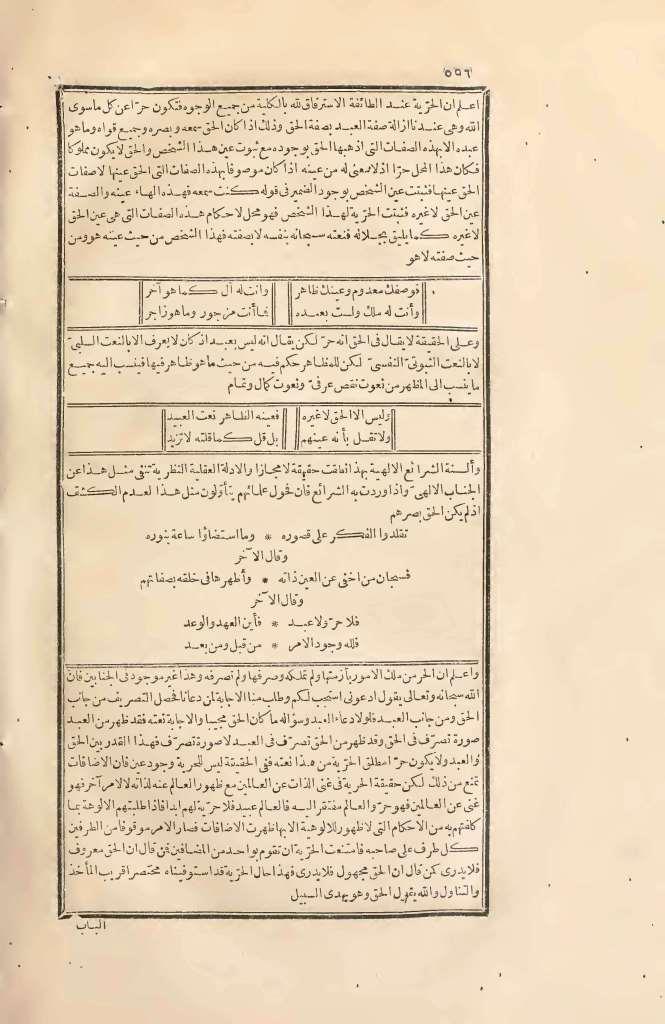 ٥٥٦
اعلم ان الحرّية عند الطائفة الاسترقاق لله بالكلية من جميع الوجوه فتكون حرّا عن كل ماسوى
الله وهى عندنا ازالة صفة العبد بصفة الحق وذلك اذا كان الحق سمعه وبصره وجميع قواه وما هو
عبد الا بهذه الصفات التى اذهبها الحق بوجوده مع ثبوت عين هذا الشخص والحق لا يكون مملوكا
فكان هذا المحل حرّا اذ لا معنى له من عينه اذا كان موصوفا بهذه الصفات التى الحق عينها لا صفات
الحق عينها فثبتت عين الشخص بوجود الضمير فى قوله كنت سمعه فهذه الهاء عينه والصفة
عين الحق لا غيره فثبتت الحرّية لهذا الشخص فهو محل لاحكام هذه الصفات التى هى عين الحق
لا غيره كما يليق بجلاله فنعته سبحانه بنفسه لا بصفته فهذا الشخص من حيث عينه هو ومن
حيث صفته لا هو
فوصفك معدوم وعينك ظاهر وانت له آل كما هو آخر
وأنت له ملك ولست بعبده فما أنت من جور وما هو زاجر
وعلى الحقيقة لا يقال فى الحق انه حرّ لكن يقال انه ليس بعبد اذ كان لا يعرف الا بالنعت السلبىّ
لا بالنعت الثبوتىّ النفسىّ لكن للمظاهر حكم فيه من حيث ما هو ظاهر فيها فينسب اليه جميع
ما ينسب الى المظهر من نعوت نقص عرفىّ ونعوت كمال وتمام
وليس الا الحق لا غيره فعينه الظاهر نعت العبيد
ولا تقل بأنه عينهم بل قل كما قلته لا تزيد
وألسنة الشرائع الالهية بهذا نطقت حقيقة لا مجازا والادلة العقلية النظرية تنفى مثل هذا عن
الجناب الالهىّ واذا وردت به الشرائع فان فحول علمائهم يتأوّلون مثل هذا لعدم الكشف
اذ لم يكن الحق بصرهم
تقلدوا الفكر على قصوره * وما استضاؤا ساعة بنوره
وقال الآخر
فسبحان من اخفى عن العين ذاته * وأظهرها فى خلقه بصفاتهم
وقال الآخر
فلا حرّ ولا عبد * فأين العهد والوعد
فلله وجود الامر * من قبل ومن بعد
واعلم ان الحر من ملك الامور بأزمتها ولم تملكه وصرفها ولم تصرفه وهذا غير موجود فى الجنابين فان
الله سبحانه وتعالى يقول ادعونى استجب لكم وطلب منا الاجابة لمن دعانا فحصل التصريف من جانب
الحق ومن جانب العبد فلولا دعاء العبد وسؤاله ما كان الحق مجيبا والاجابة نعته فقد ظهر من العبد
صورة تصرّف فى الحق وقد ظهر من الحق تصرّف فى العبد لا صورة تصرّف فهذا القدر بين الحق
والعبد ولا يكون حرّا مطلق الحرّية من هذا نعته ففى الحقيقة ليس للحرية وجود عين فان الاضافات
تمنع من ذلك لكن حقيقة الحرية فى غنى الذات عن العالمين مع ظهور العالم عنه لذاته لا لامر آخر فهو
غنى عن العالمين فهو حرّ والعالم مفتقر اليه فالعالم عبيد فلا حرّية لهم ابدا فاذا طلبتهم الالوهة بما
كلفتهم به من الاحكام التى لا ظهور للالوهية الا بها ظهرت الاضافات فصار الامر موقوفا من الطرفين
كل طرف على صاحبه فامتنعت الحرّية ان تقوم بواحد من المضافين فمن قال ان الحق معروف
فلا يدرى كمن قال ان الحق مجهول فلا يدرى فهذا حال الحرّية قد استوفيناه مختصرا قريب المأخذ
والتناول والله يقول الحق وهو يهدى السبيل
الباب